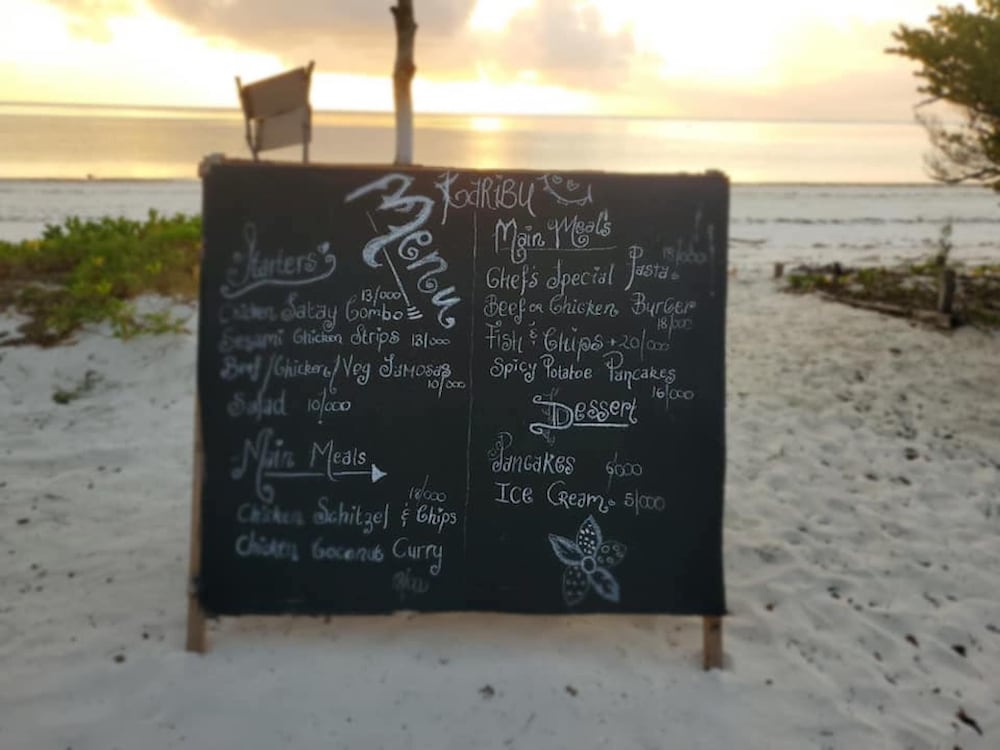 Menu
Karibu
Starters
13/000
Chicken Satay Combo
Sesami Chicken Strips 13/000
Beef/Chicken/Veg Samosas
10/000
Salad 10/000
Main Meals
18/000
Chicken Schitzel & Chips
Chicken Coconut Curry
Main Meals
18/000
Chef's Special Pasta
Beef or Chicken Burger
18/000
Fish & Chips 20/000
Spicy Potatoe Pancakes
16/000
Dessert
Pancakes 6000
Ice Cream 5/000